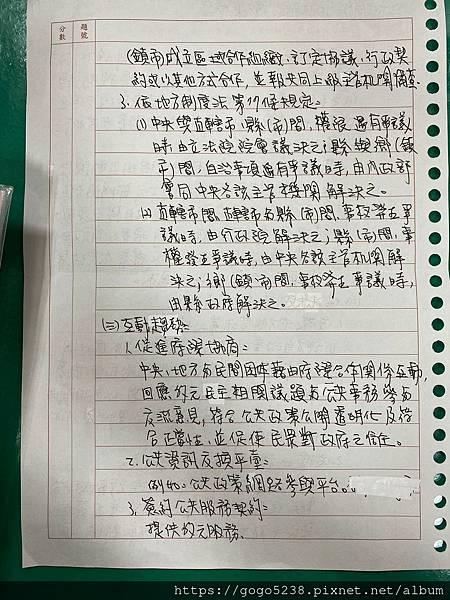 題號
分數
(鎮市)成立區域合作組織、訂定協議、行政契
約或以其他方式合作,並報共同上級主管機關備查
3. 依地方制度法第77條規定:
(1)中央與直轄市、縣(市)間,權限遇有爭議
時由立法院院會議決之;縣與鄉(鎮
市)間,自治事項遇有爭議時,由內政部
會同中央各該主管機關解決之。
(2)直轄市間、直轄市與縣(市)間,事權發生爭
議時,由行政院解決之;縣(市)間,事
權發生爭議時,由中央各該主管機關解
決之;鄉(鎮市)間,事權發生爭議時,
由縣政府解決之。
(三)互動趨勢:
1.促進府際協商:
中央、地方與民間團体藉由府際合作關係互動,
回應多元民主相關議題與公共事務參與
交流意見,符合公共政策公開透明化及符
合正當性,並促使民眾對政府之信任。
2. 公共資訊交換平臺:
例如:公共政策網路參與平台。
3. 簽約公共服務契約:
提供多元服務、
https://gogo5238.pixnet.net/album